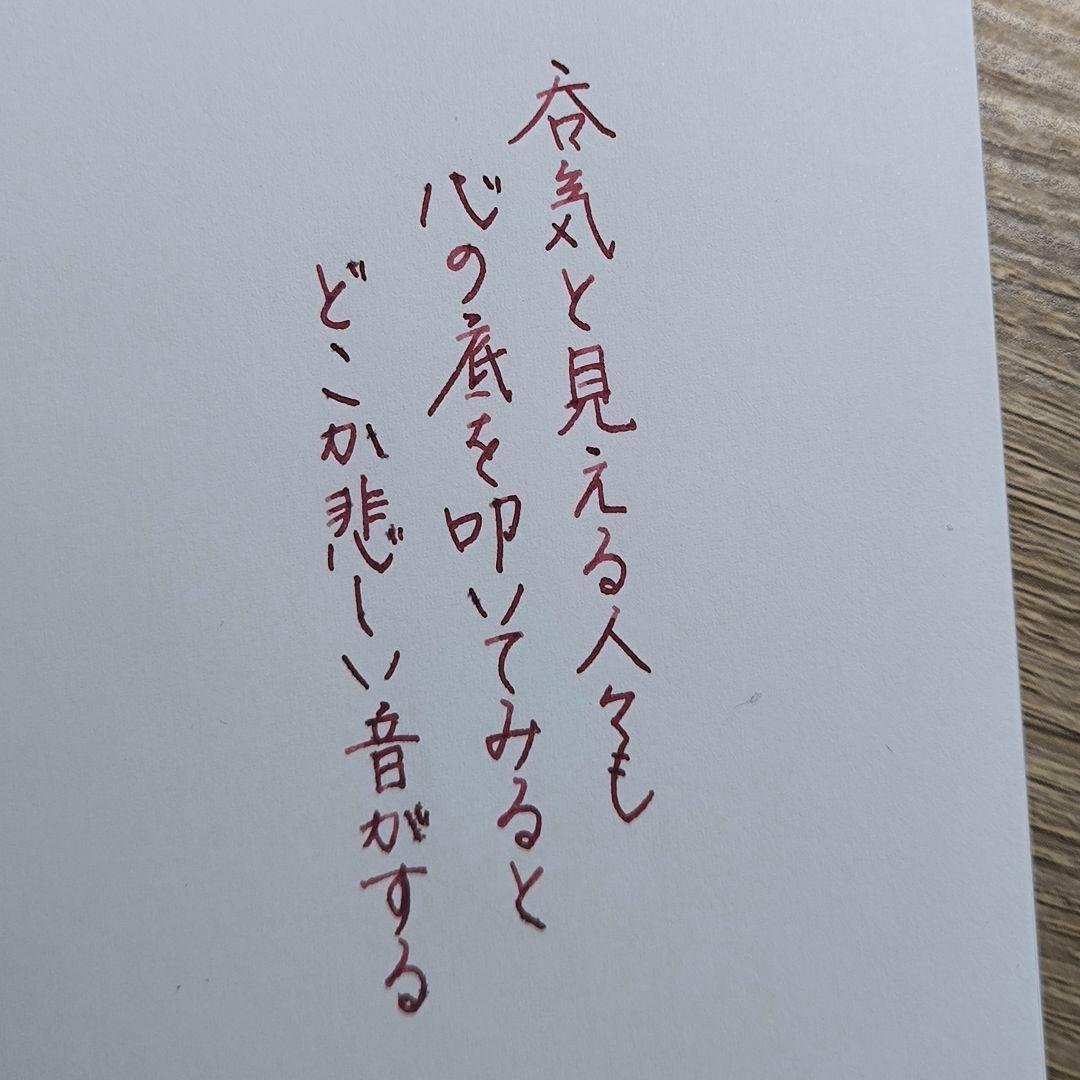 呑気と見える人々も
心の底を叩いてみると
どこか悲しい音がする